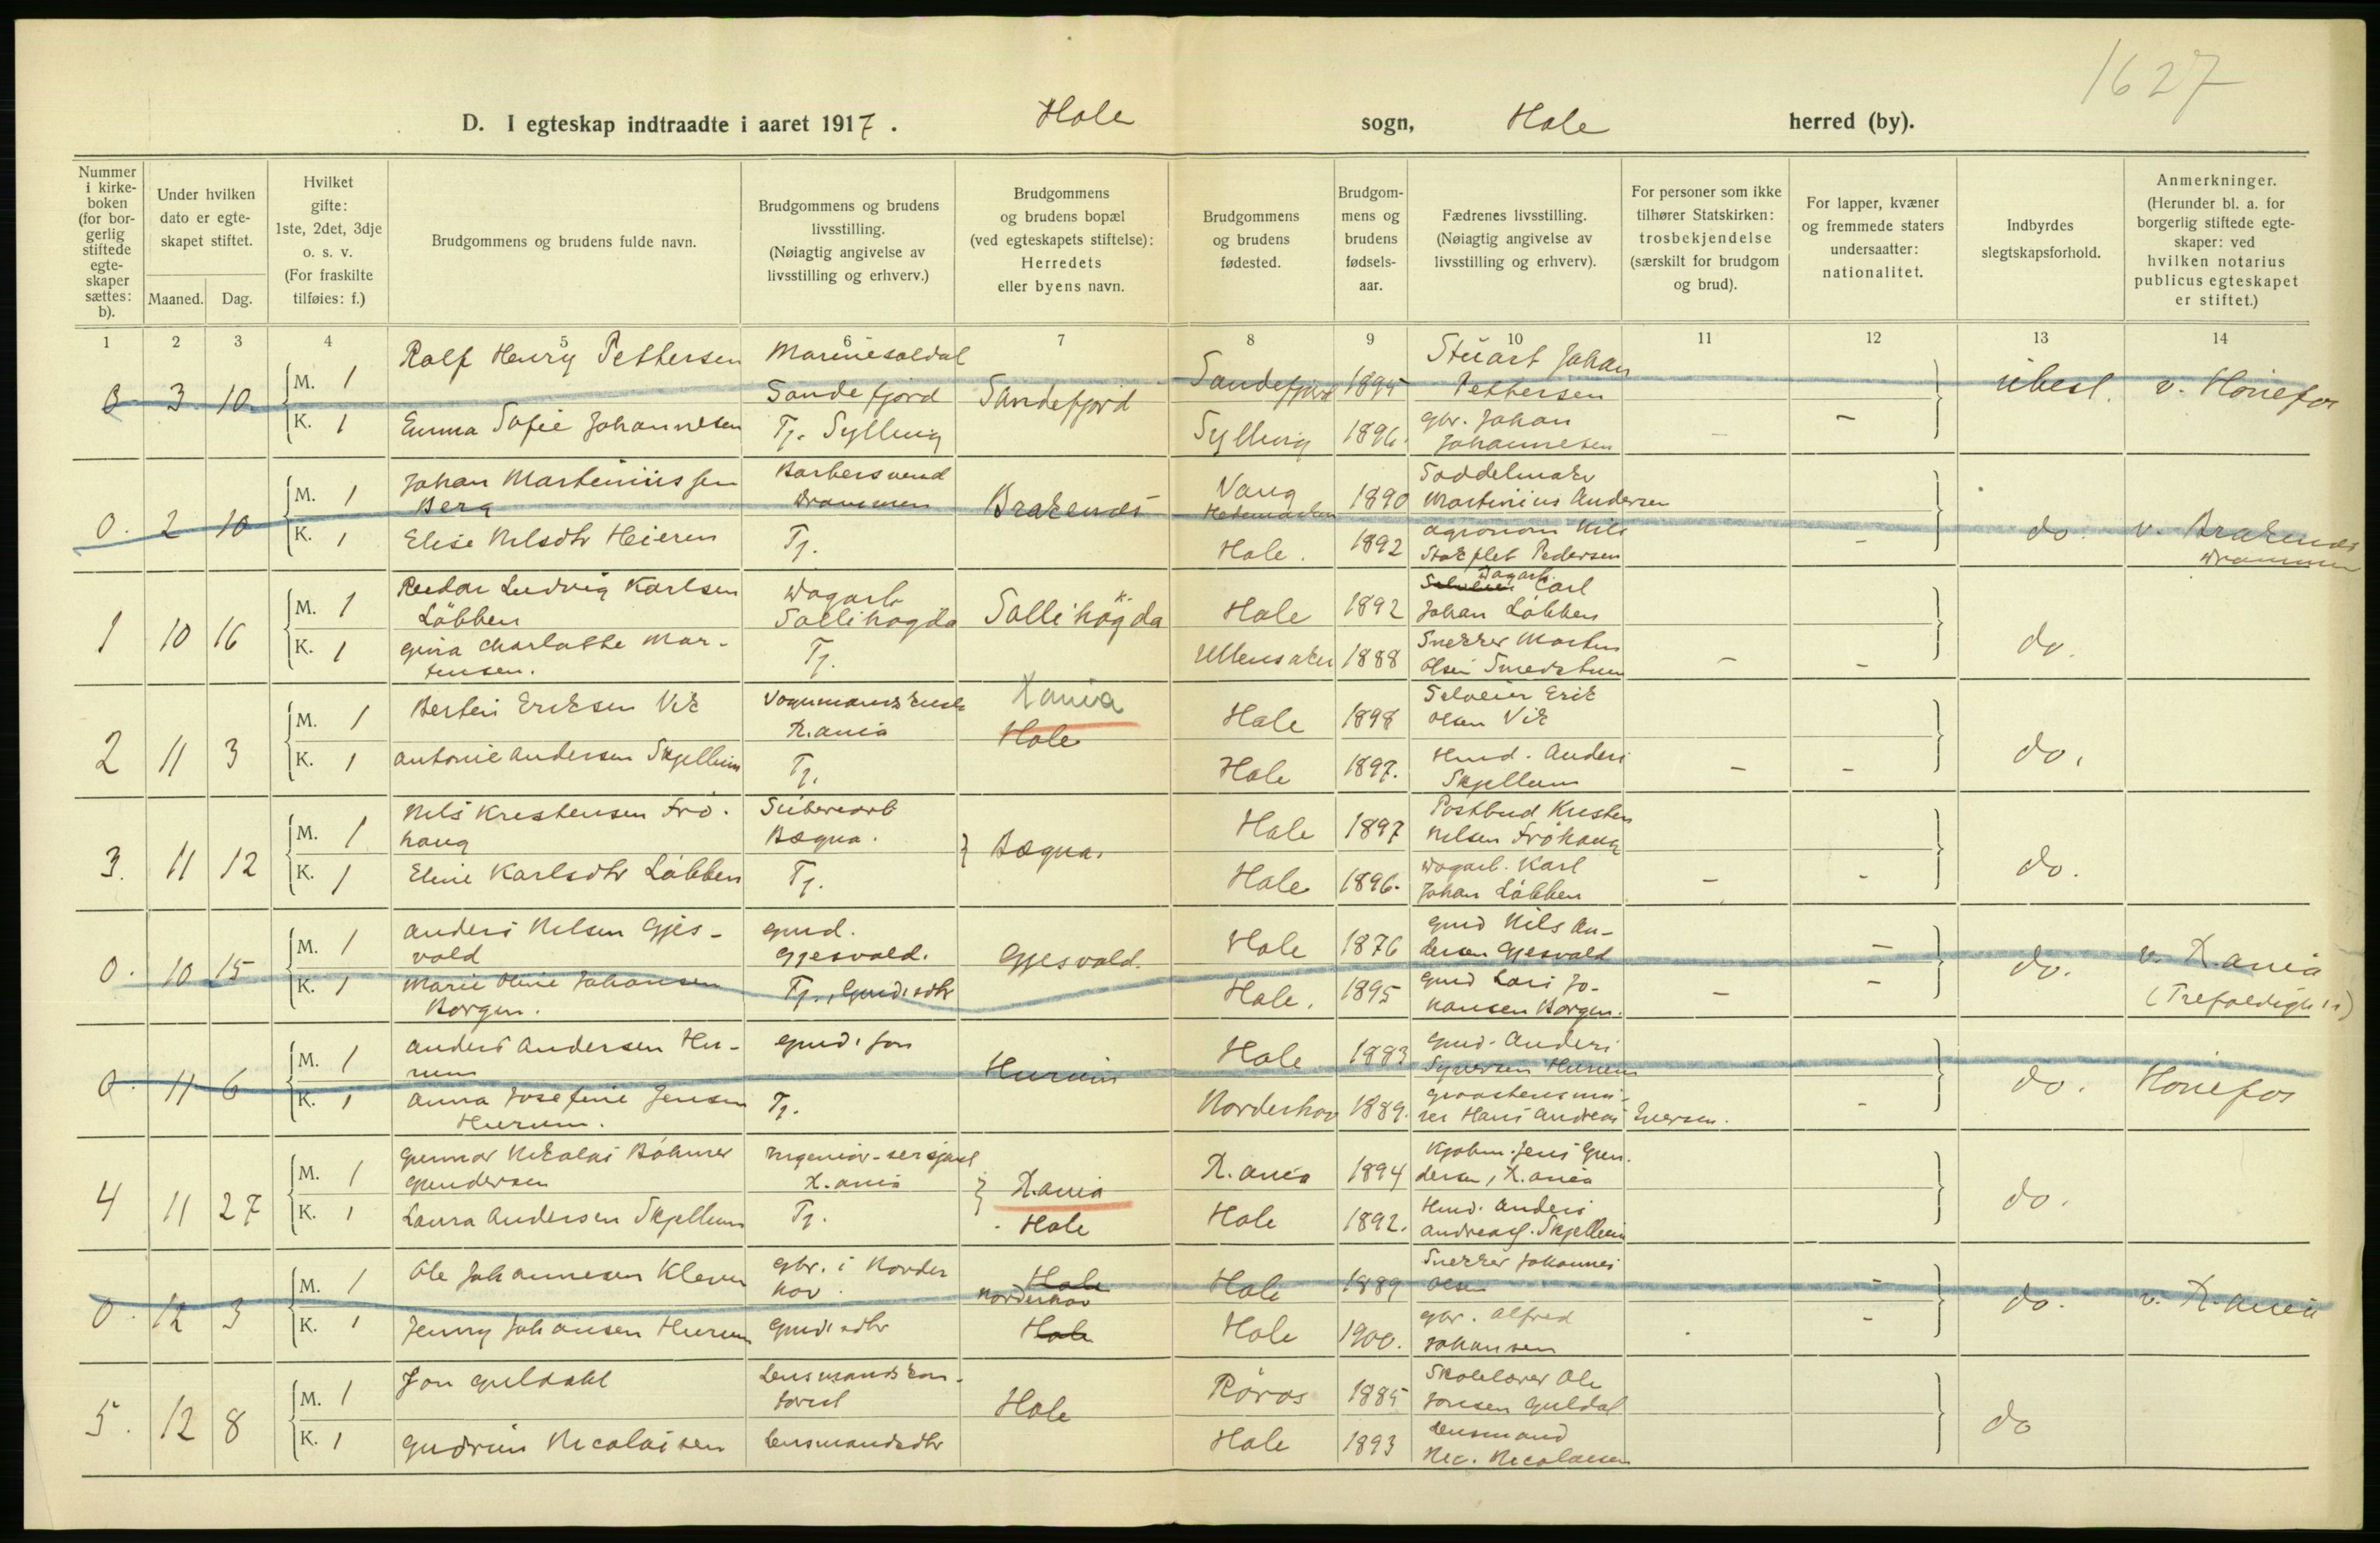 1627
D. I egteskap indtraadte i aaret 1917. Hole sogn, Hole herred (by).
Nummer i kirkeboken (for borgerlig stiftede egteskaper sættes: b).
Under hvilken dato er egteskapet stiftet.
Maaned. Dag.
Hvilket gifte: 1ste, 2det, 3dje o. s. v. (For fraskilte tilføies: f.)
Brudgommens og brudens fulde navn.
Brudgommens og brudens livsstilling. (Nøiagtig angivelse av livsstilling og erhverv.)
Brudgommens og brudens bopæl (ved egteskapets stiftelse): Herredets eller byens navn.
Brudgommens og brudens fødested.
Brudgommens og brudens fødselsaar.
Fædrenes livsstilling. (Nøiagtig angivelse av livsstilling og erhverv).
For personer som ikke tilhører Statskirken: trosbekjendelse (særskilt for brudgom og brud).
For lapper, kvæner og fremmede staters undersaatter: nationalitet.
Indbyrdes slegtskapsforhold.
Anmerkninger. (Herunder bl. a. for borgerlig stiftede egteskaper: ved hvilken notarius publicus egteskapet er stiftet.)
1 2 3 4 5 6 7 8 9 10 11 12 13 14
0 3 10 M. 1 Rolf Henry Pettersen Marinesoldat Sandefjord Sandefjord Sandefjord 1895 Stuart Johan Pettersen ubesl. v. Hönefos
K. 1 Emma Sofie Johannesen Tj. Sylling Sylling 1896. gbr. Johan Johannesen — —
0. 2 10 M. 1 Johan Martiniussen Berg Barbersvend Drammen Brakenæs Vang Hedemarken 1890 Saddelmaker Martinius Andersen do. v. Brakenæs Drammen
K. 1 Elise Nilsdtr Heieren Tj. Hole. 1892 agronom Nils Stokflet Pedersen —
1 10 16 M. 1 Reidar Ludvig Karlsen Löbben Dagarb. Sollihøgda Sollihøgda Hole 1892 Dagarb. Carl Johan Löbben do.
K. 1 Gina Charlotte Martensen. Tj. Ullensaker 1888 Snekker Morten Olsen Smedstuen — —
2 11 3 M. 1 Bertin Eriksen Vik Vognmandskusk K.ania Kania Hole Hole 1898 Selveier Erik Olsen Vik do.
K. 1 Antonie Andersen Skjellum Tj. Hole 1897. Hmd. Anders Skjellum — —
3. 11 12 M. 1 Nils Kristensen Fröhaug Sliberiarb Bægna. } Bægna. Hole 1897 Postbud Kristen Nilsen Fröhaug do.
K. 1 Eline Karlsdtr Löbben Tj. Hole 1896. Dagarb. Karl Johan Löbben — —
0. 10 15 M. 1 Anders Nilsen Gjesvold gmd. Gjesvold. Gjesvold. Hole 1876 gmd Nils Andersen Gjesvold — do. v. K.ania (Trefoldigh.)
K. 1 Marie Oline Johansen Borgen. Tj., Gmd.sdtr Hole. 1895 gmd Lars Johansen Borgen. — —
0. 11 6 M. 1 Anders Andersen Hurum gmd.søn Hurum Hole 1883 gmd. Anders Syversen Hurum do. Hönefos
K. 1 Anna Josefine Jensen Hurum. Tj. Norderhov 1889. graastensmurer Hans Andreas Iversen. —
4 11 27 M. 1 Gunnar Nikolai Böhmer Gundersen Ingeniør-sersjant K.ania } K.ania K.ania 1894 Kjøbm. Jens Gundersen, K.ania do.
K. 1 Laura Andersen Skjellum Tj. Hole Hole 1892. Hmd. Anders Andreas. Skjellum
0. 12 3 M. 1 Ole Johannesen Kleven gbr. i Norderhov Hole Norderhov Hole 1889 Snekker Johannes Olsen — do. v. K.ania
K. 1 Jenny Johansen Hurum Gmd.sdtr Hole Hole 1900. gbr. Alfred Johansen —
5. 12 8 M. 1 Jon Guldahl Lensmandskontorist Hole Röros 1885 Skolelærer Ole Jonsen Guldal do
K. 1 Gudrun Nicolaisen Lensmandsdtr Hole 1893 Lensmand Nic. Nicolaisen